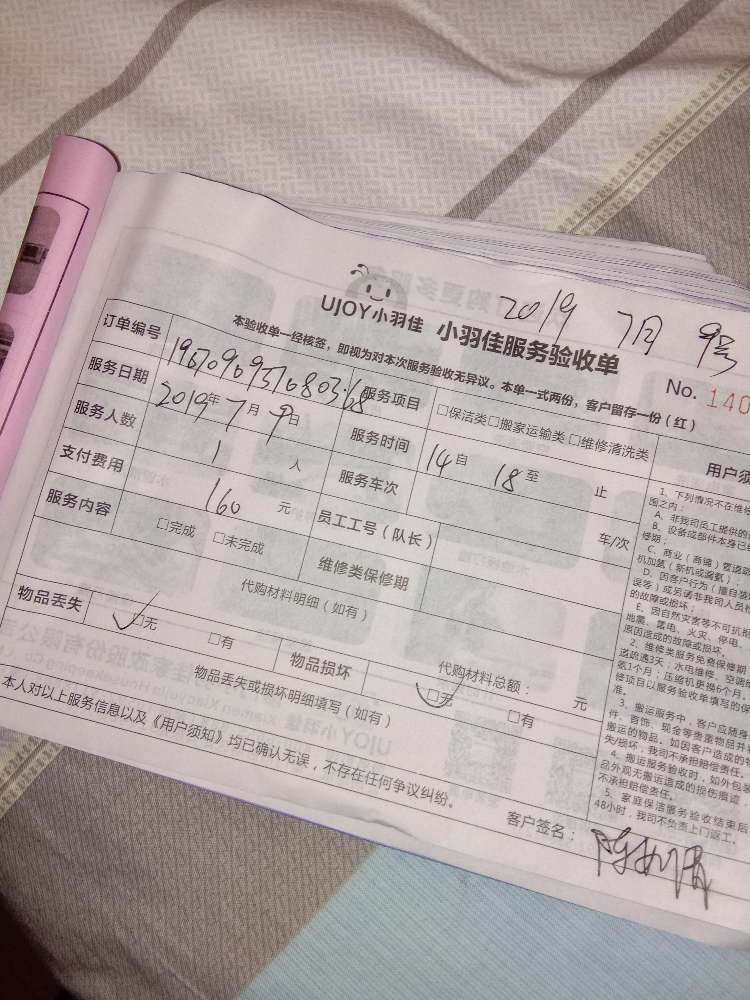 2019 7月 9号
UJOY小羽佳 小羽佳服务验收单
No. 140
本验收单一经核签，即视为对本次服务验收无异议。本单一式两份，客户留存一份（红）
订单编号 服务项目 □保洁类□搬家运输类 □维修清洗类
服务日期 2019年 7月 9日 服务时间 14 自 18 至 止
服务人数 1 人 服务车次 车/次
支付费用 160 元 员工工号（队长）
服务内容 □完成 □未完成 维修类保修期
代购材料明细（如有） 代购材料总额： 元
物品丢失 ☑无 □有 物品损坏 ☑无 □有
物品丢失或损坏明细填写（如有）
本人对以上服务信息以及《用户须知》均已确认无误，不存在任何争议纠纷。
客户签名：
用户须
1、下列情况不在维修
围之内：
A、非我司员工提供的
B、设备或部件本身已
修期；
C、商业（商铺）管道疏
机加氨（新机或漏氨）；
D、因客户行为（擅自装
误等）或另请非我司人员
的故障或损坏；
E、因自然灾害等不可抗拒
地震、雷电、火灾、停电、
原因造成的故障或损坏。
2、维修类服务免费保修期
道疏通3天；水电维修、空调维
氨1个月；压缩机更换6个月；
修项目以服务验收单填写的保
准。
3、搬运服务中，客户应随身
件、首饰、现金等贵重物品并
搬运的物品，如因客户造成的物
失/损坏，我司不承担赔偿责任。
4、搬运服务验收时，如外包装
品外观无搬运造成的损伤痕迹
不承担赔偿责任。
5、家庭保洁服务验收结束后
48小时，我司不负责上门返工。